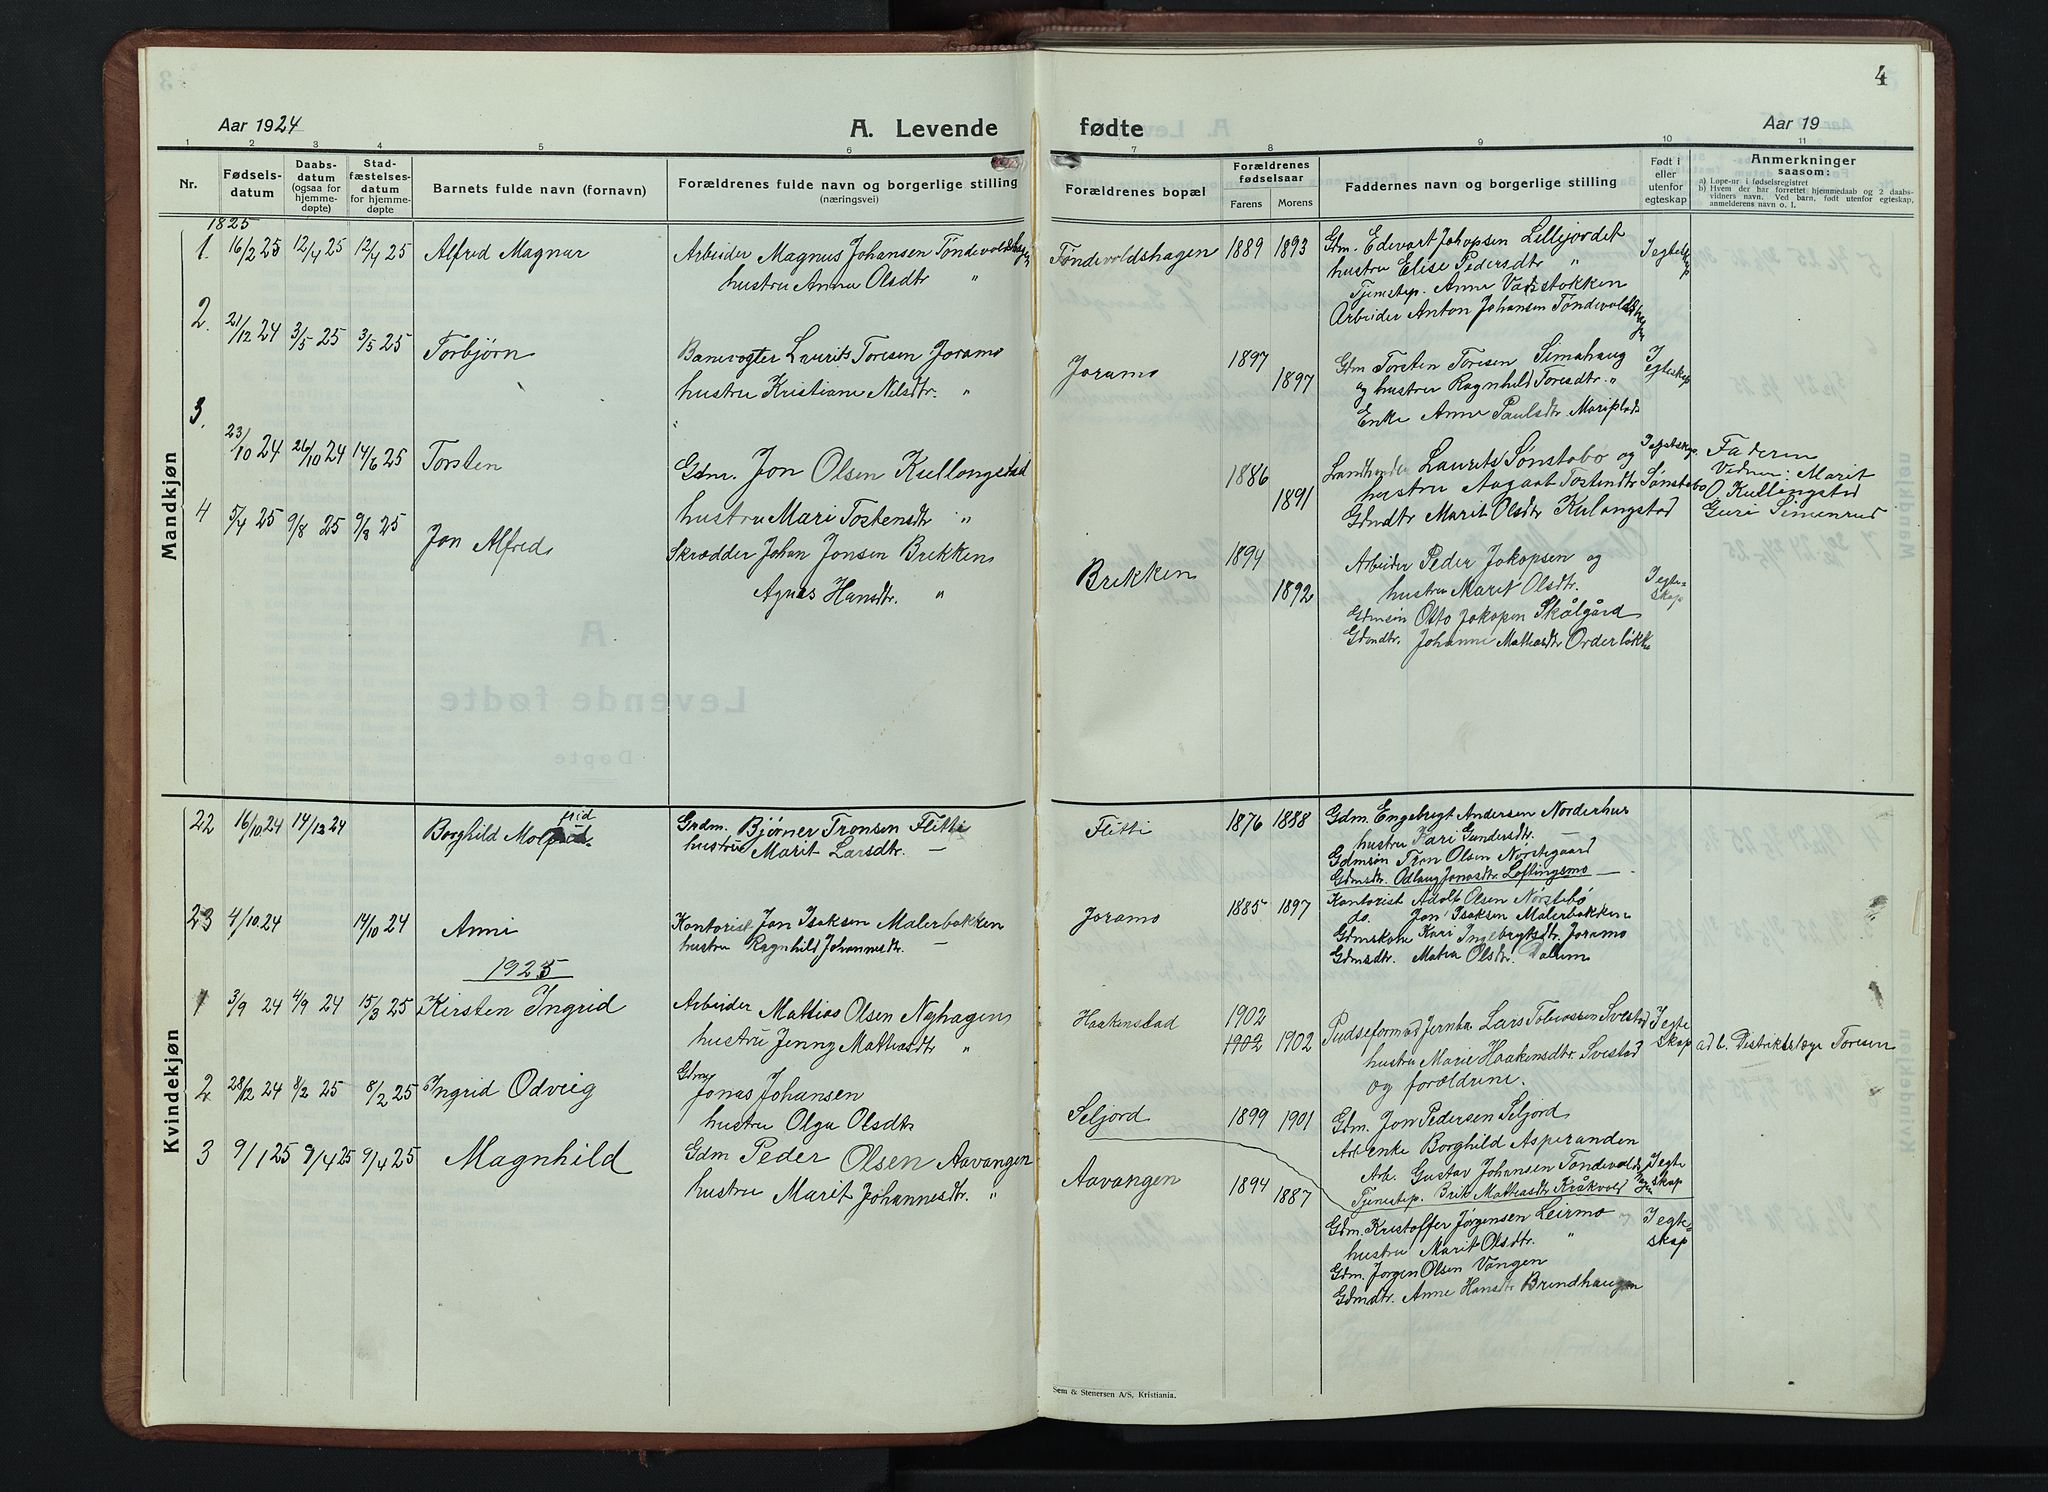 4
Aar 1924
A. Levende
fødte
Aar 19
1 2 3 4 5 6
7 8 9 10 11
Nr.
Fødsels-
datum
Daabs-
datum
(ogsaa for
hjemme-
døpte)
Stad-
fæstelses-
datum
for hjemme-
døpte
Barnets fulde navn (fornavn)
Forældrenes fulde navn og borgerlige stilling
(næringsvei)
Forældrenes bopæl
Forældrenes
fødselsaar
Farens
Morens
Faddernes navn og borgerlige stilling
Født i
eller
utenfor
egteskap
Anmerkninger
saasom:
a) Løpe-nr. i fødselsregistret
b) Hvem der har forrettet hjemmedaab og 2 daabs-
vidners navn. Ved barn, født utenfor egteskap,
anmelderens navn o. l.
Mandkjøn
1825
1. 16/2 25 12/4 25 12/4 25 Alfred Magnar
Arbeider Magnus Johansen Tøndevoldshagen
hustru Anna Olsdtr "
Tøndevoldshagen 1889 1893
Gdm. Edevart Jakopsen Lillejordet
hustru Elise Pedersdtr "
Tjenestep. Anne Vadstokken
Arbeider Anton Johansen Tøndevoldshagen
I egteskap
2. 21/12 24 3/5 25 3/5 25 Torbjørn
Banevogter Laurits Toresen Joramo
hustru Kristiane Nilsdtr. "
Joramo 1897 1897
Gdm Torsten Toresen Simahaug
og hustru Ragnhild Toresdtr. "
Enke Anne Paulsdtr Mariplads
I egteskap
3. 23/10 24 26/10 24 14/6 25 Torsten
Gdm. Jon Olsen Kullongstad
hustru Mari Tostensdtr "
1886 1891
Landhandler Laurits Sønstebo og
hustru Aagaat Tostendtr Sønstebo
Gdmdtr Marit Olsdtr Kulongstad
I egteskap.
Faderen
Vidner: Marit
O. Kullingstad
Guri Simenrud
4 5/4 25 9/8 25 9/8 25 Jon Alfred
Skrædder Johan Jonsen Brekken
Agnes Hansdtr. "
Brekken 1894 1892
Arbeider Peder Jakopsen og
hustru Marit Olsdtr.
Gdmsøn Otto Jakopsen Skålgård
Gdmdtr. Johanne Mattiasdtr Orderløkken
I egte-
skap
Kvindekjøn
22 16/10 24 14/12 24 Borghild Molfrid
Grdm. Bjørner Tronsen Flitti
hustru Marit Larsdtr. —
Flitti 1876 1888
Gdm. Engebrigt Andersen Norderhus
hustru Kari Gundersdtr.
Gdmsøn Tron Olsen Norstegaard
Gdmsdtr. Odlaug Jonasdtr. Loftingsmo
23 4/10 24 14/10 24 Anni
Kontorist Jon Isaksen Malerbakken
hustru Ragnhild Johannesdtr. —
Joramo 1885 1897
Kontorist Adolf Olsen Nørstebø
do. Jon Isaksen Malerbakken
Gdmskone Kari Ingebrigtsdtr. Joramo
Gdmsdtr. Matea Olsdtr. Dalum
1925
1 3/9 24 4/9 24 15/3 25 Kirsten Ingrid
Arbeider Mattias Olsen Nyhagen
hustru Jenny Mattiasdtr "
Haakenstad 1902 1902 1902
Pudseformad Jernba. Lars Tobiassen Svestad
hustru Marie Haakensdtr. Svestad
og forældrene.
I egte
skap
ad b. Distriktslæge Toresen
2 28/12 24 8/2 25 8/2 25 Ingrid Odveig
Gdm
Jonas Johansen
hustru Olga Olsdtr
Seljord 1899 1901
Gdm. Jon Pedersen Seljord
Arb enke Borghild Asperanden
Arb. Gustav Johansen Tøndevoldshagen
Tjenestep. Brit Mattiasdtr Kråkvold
I egte
skap
3 9/1 25 9/4 25 9/4 25 Magnhild
Gdm Peder Olsen Aavangen
hustru Marit Johannesdtr. "
Aavangen 1894 1887
Gdm. Kristoffer Jørgensen Leirmo
hustru Marit Olsdtr. "
Gdm. Jørgen Olsen Vangen
Gdmdtr. Anne Hansdtr Brendhaugen
I egte-
skap
Sem & Stenersen A/S, Kristiania.